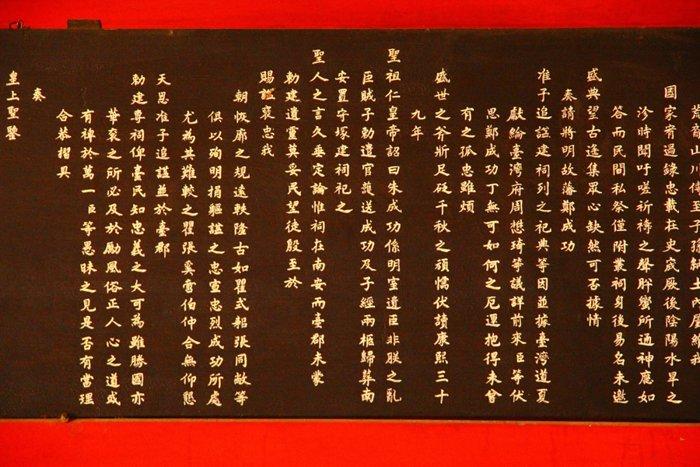 國家宥過錄忠載在史宬厥後陰陽水旱之
沴時聞吁嗟祈禱之聲肸蠁所通神應如
答而民間私祭僅附叢祠身後易名未邀
盛典望古遙集眾心缺然可否據情
奏請將明故藩鄭成功
准予追諡建祠列之祀典等因並據臺灣道夏
獻綸臺灣府周懋琦等議詳前來臣等伏
思鄭成功丁無可如何之厄運抱得未曾
有之孤忠雖煩
盛世之斧斨足砭千秋之頑懦伏讀康熙三十
九年
聖祖仁皇帝詔曰朱成功係明室遺臣非朕之亂
臣賊子勅遣官護送成功及子經兩柩歸葬南
安置守塚建祠祀之
聖人之言久垂定論惟祠在南安而臺郡未蒙
勅建遺靈莫妥民望徒殷至於
賜諡褒忠我
朝恢廓之規遠軼隆古如瞿式耜張同敞等
俱以殉明捐軀諡之忠宣忠烈成功所處
尤為其難較之瞿張奚啻伯仲合無仰懇
天恩准予追諡並於臺郡
勅建專祠俾臺民知忠義之大可為雖勝國亦
華袞之所必及於勵風俗正人心之道或
有裨於萬一臣等愚昧之見是否有當理
合恭摺具
奏
皇上聖鑒